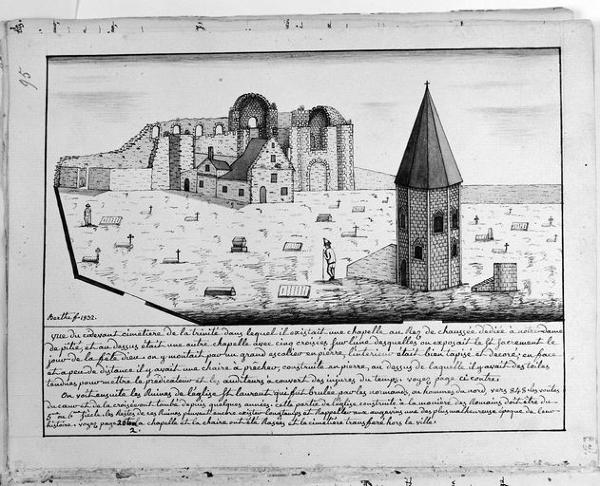 95
Berthe f. 1832.
Vue du cidevant cimetière de la trinité dans lequel il existait une chapelle au Rez de chaussée dediée à notre dame
de pitié, et au dessus était une autre chapelle avec cinq croisés sur l'une desquelles on exposait le St sacrement le
jour de la fête dieu. on y montait par un grand escalier en pierre, l'interieur était bien tapisé et decoré; en face
et a peu de distance il y avait une chaire à precher, construite en pierre, au dessus de laquelle il y avait des toiles
tendues pour mettre le prédicateur et les auditeurs a couvert des injures du temps. voyez page ci contre.
On voit ensuite les Ruines de l'eglise St laurent, que fut brulée par les normands, ou hommes du nord, vers 848. les voutes
du cœur et de la croisée ont tombé depuis quelques années; cette partie de l'eglise construite à la manière des Romains doit être du
5me ou 6me siecle. les Restes de ces Ruines peuvent encore exister longtemps et Rappeller aux angevins une des plus malheureuse epoque de leur
histoire. voyez page la chapelle et la chaire ont été Rasées et la cimetière transferé hors la ville.
2.